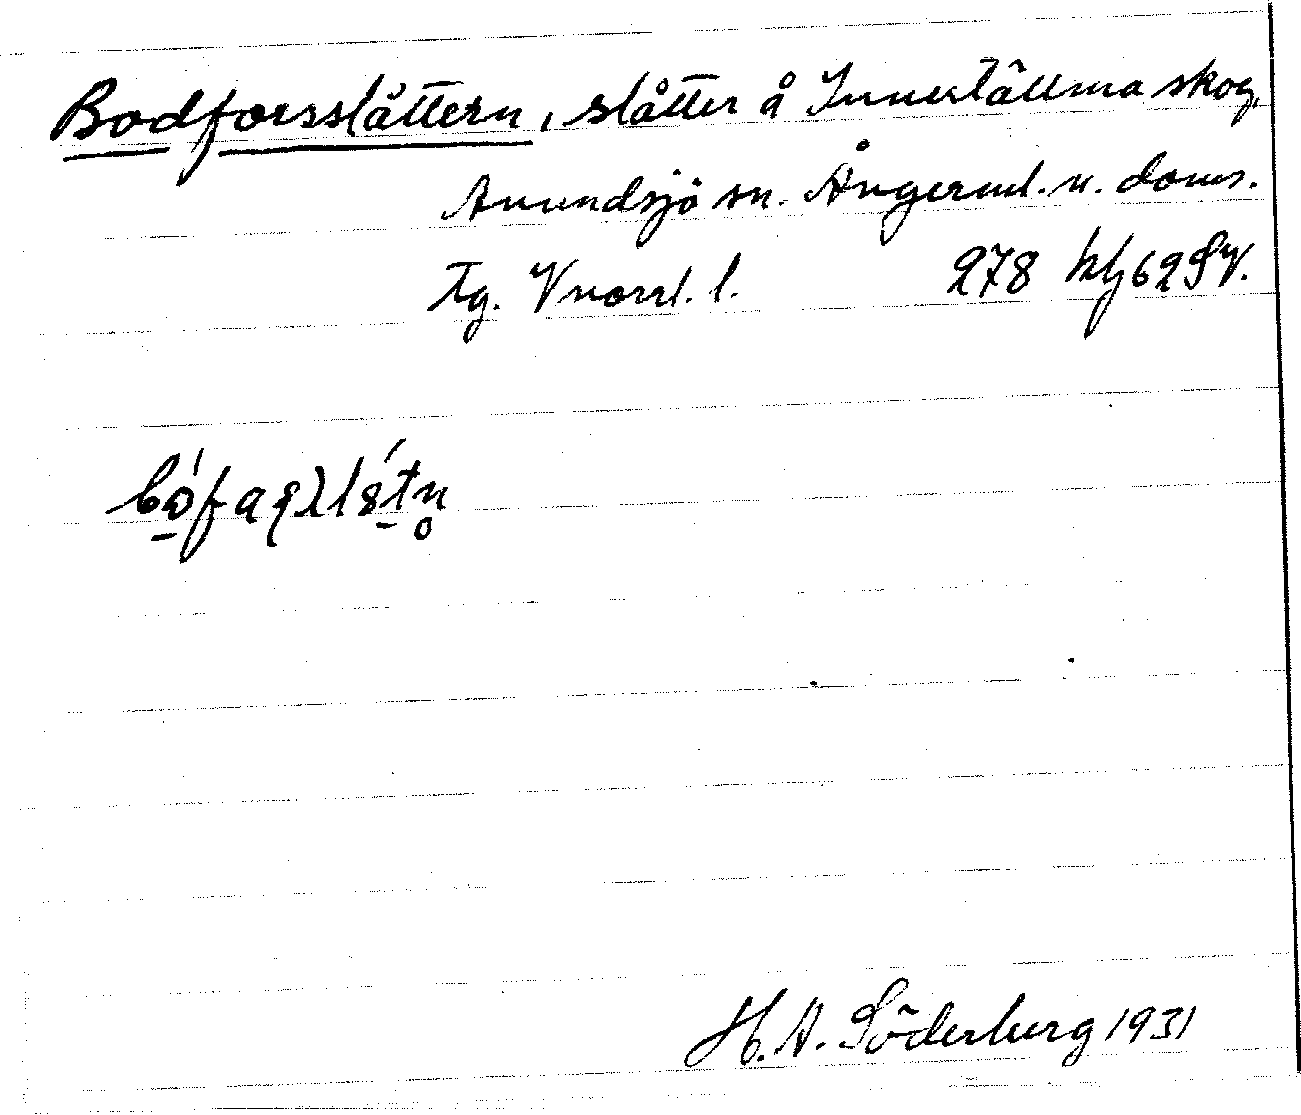 Bodforsslåttern, slåtter å Innertällmo skog,
Anundsjö sn. Ångerml. n. doms.
Tg. Vnorrl. l. 278 hlj 62 SV.
H. A. Söderberg 1931